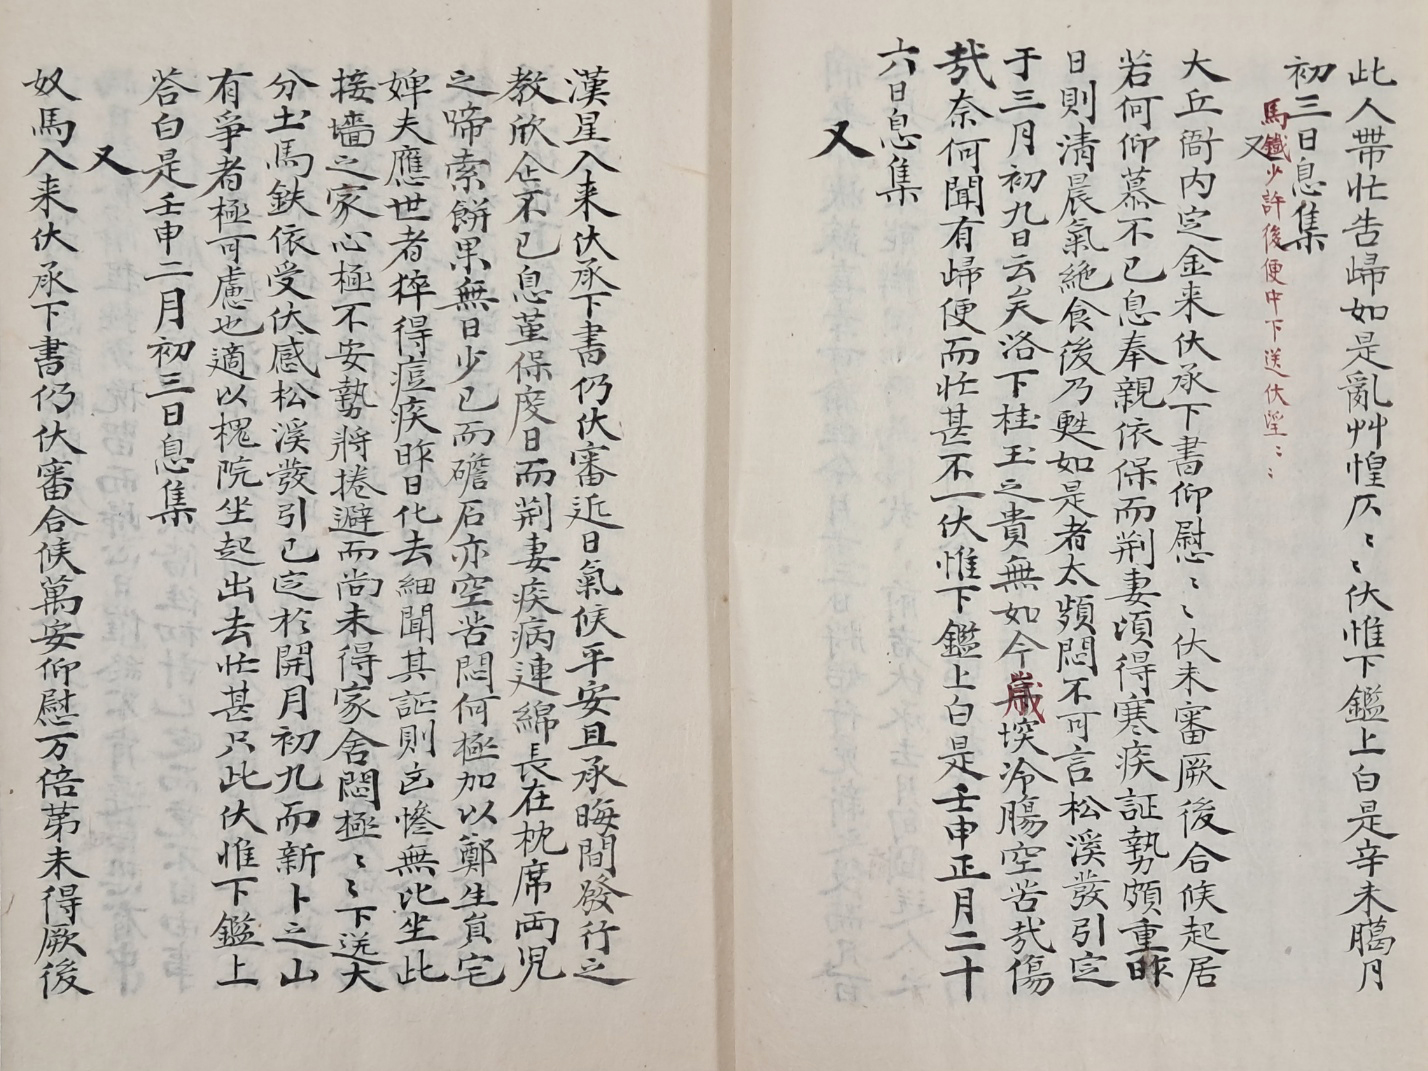 此人帶忙告歸如是亂艸惶仄〻〻伏惟下鑑上白是辛未臈月
初三日息集
馬鐵少許後便中下送伏望〻〻
又
大丘衙内定金来伏承下書仰慰〻〻伏未審厥後合候起居
若何仰慕不已息奉親依保而荆妻頃得寒疾証勢頗重昨
日則清晨氣絶食後乃甦如是者太頻悶不可言松溪發引定
于三月初九日云矣洛下桂玉之貴無如今歲堗冷腸空苦哉傷
哉奈何聞有歸便而忙甚不一伏惟下鑑上白是壬申正月二十
六日息集
又
漢星入来伏承下書仍伏審近日氣候平安且承晦間發行之
教欣企不已息菫保度日而荆妻疾病連綿長在枕席兩児
之啼索餅果無日少已而礠石亦空苦悶何極加以鄭生員宅
婢夫應世者猝得痘疾昨日化去細聞其証則凶慘無比坐此
接墻之家心極不安勢將捲避而尚未得家舍悶極〻〻下送大
分土馬鉄依受伏感松溪發引已定於開月初九而新卜之山
有爭者極可慮也適以槐院坐起出去忙甚只此伏惟下鑑上
答白是壬申二月初三日息集
又
奴馬入来伏承下書仍伏審合候萬安仰慰万倍第未得厥後